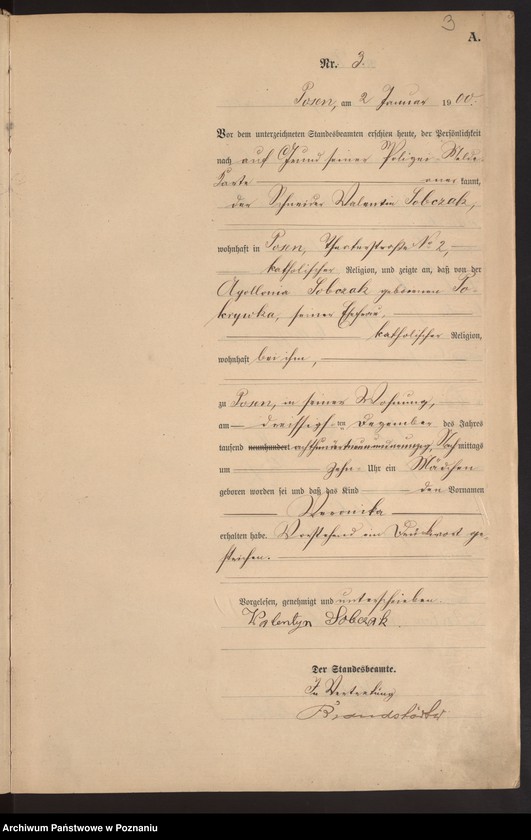 3
A.
Nr. 3.
Posen, am 2 Januar 1900.
Vor dem unterzeichneten Standesbeamten erschien heute, der Persönlichkeit
nach auf Grund seiner Polizei Melde
Karte kannt,
der Schneider Valentin Sobczak,
wohnhaft in Posen, Theaterstraße No 2,
katholischer Religion, und zeigte an, daß von der
Apollonia Sobczak geborenen Po-
krywka, seiner Ehefrau,
katholischer Religion,
wohnhaft bei ihm,
zu Posen, in seiner Wohnung,
am dreißigsten Dezember des Jahres
tausend neunhundert achthundertneunundneunzig, Nachmittags
um Zehn Uhr ein Mädchen
geboren worden sei und daß das Kind den Vornamen
Veronika
erhalten habe. Vorstehend ein Druckwort ge-
strichen.
Vorgelesen, genehmigt und unterschrieben
Walentyn Sobczak.
Der Standesbeamte.
In Vertretung
Archiwum Państwowe w Poznaniu